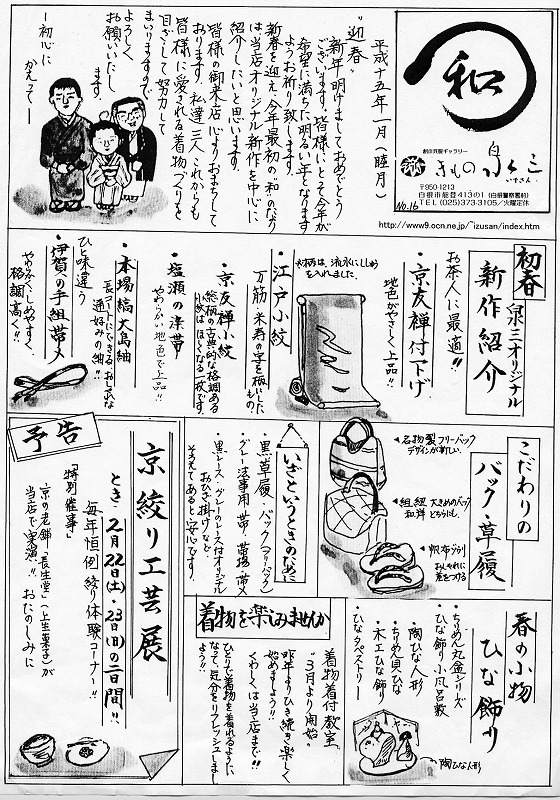 和
創作呉服ギャラリー
きもの 泉三
いずさん
〒950-1213
白根市能登413の1(白根警察署前)
TEL (025)373-3105/火曜定休
No.16
http://www9.ocn.ne.jp/~izusan/index.htm
平成十五年一月(睦月)
"迎春"
新年明けましておめでとう
ございます。皆様にとって今年が
希望に満ちた明るい年となります
ようお祈り致します。
新春を迎え、今年最初の"和"のたより
は、当店オリジナル新作を中心に
紹介したいと思います。
皆様の御来店心よりおまちして
おります。私達三人これからも
皆様に愛される着物づくりを
目ざして努力して
まいりますので
よろしく
お願いいたし
ます。
ー初心に
かえってー
初春
泉三オリジナル
新作紹介
お茶人に最適!!
・京友禅付下げ
地色がやさしく上品!!
※柄は、流水にししゅう
を入れました。
・江戸小紋
万筋、米寿の字を柄にした
もの。
・京友禅小紋
総柄の古典的な格調ある
小紋はほしくなる一枚です。
・塩瀬の染帯
やわらかい地色で上品!!
・本場縞大島紬
長コートにできるおしゃれな
通好みの紬!!
ひと味違う
・伊賀の手組帯〆
やわらくしめやすく、
格調高く!!
こだわりの
バック・草履
名物裂フリーバック
デザインが新しい。
組紐 大きめのバック
和洋 どちらにも。
帆布ゾウリ
おしゃれに
差をつける
いざというときのために
・黒草履・バック(フリーバック)
・グレー法事用 帯・帯揚・帯〆
・黒レース・グレーのレース付オリジナル
おひざ掛けなど…
そろえてあると安心です。
予告
京絞り工芸展
とき、2月22日(土)、23日(日)の二日間!!
毎年恒例 絞り体験コーナー!!
「特別催事」
京の老舗「長生堂」(上生菓子)が
当店で実演!! おたのしみに
着物を楽しみませんか
着物着付教室
"3月より開始"
昨年よりひき続き楽しく
始めましょう!!
くわしくは当店まで!!
ひとりで着物を着れるように
なって、気分をリフレッシュしまし
ょう!!
春の小物
ひな飾り
・ちりめん丸盆シリーズ
ひな飾り小風呂敷
・陶ひな人形
・ちりめん貝ひな
・木工ひな飾り
・ひなタペストリー
陶ひな人形